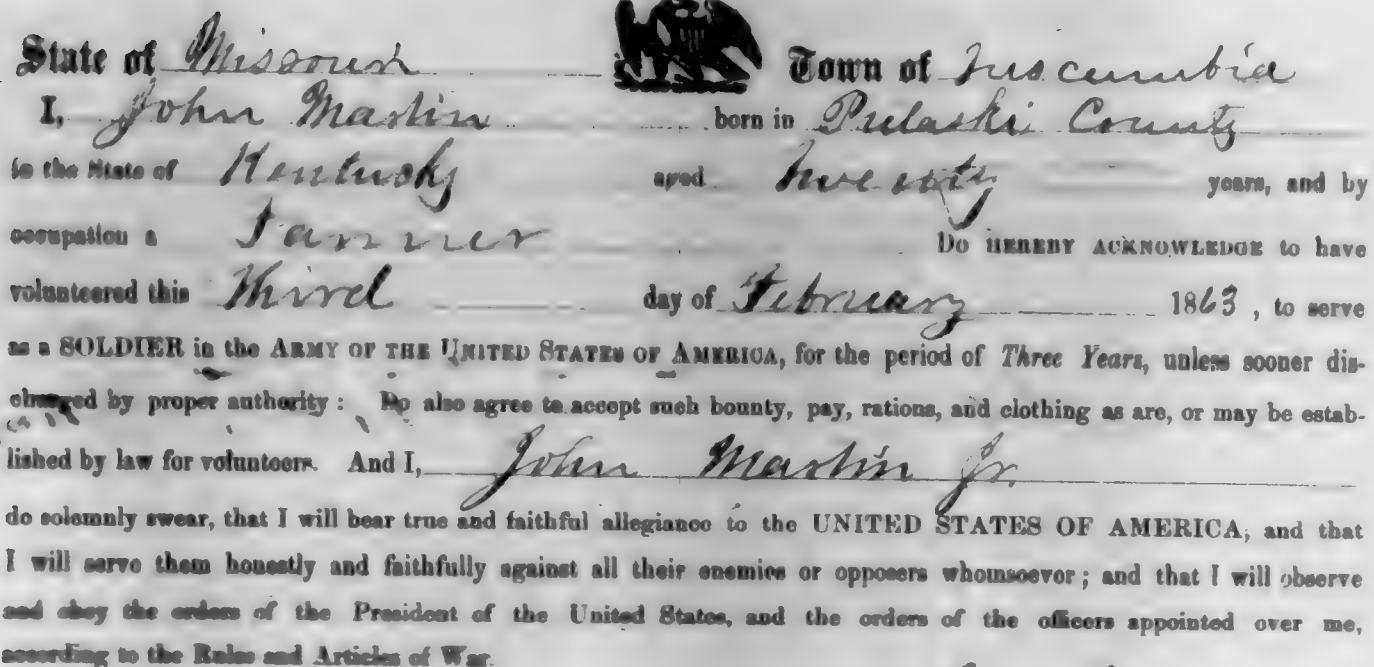 State of Missouri Town of Tuscumbia
I, John Martin born in Pulaski County
in the State of Kentucky aged twenty years, and by
occupation a Farmer Do HEREBY ACKNOWLEDGE to have
volunteered this Third day of February 1863, to serve
as a SOLDIER in the ARMY OF THE UNITED STATES OF AMERICA, for the period of Three Years, unless sooner dis-
charged by proper authority: Do also agree to accept such bounty, pay, rations, and clothing as are, or may be estab-
lished by law for volunteers. And I, John Martin Jr.
do solemnly swear, that I will bear true and faithful allegiance to the UNITED STATES OF AMERICA, and that
I will serve them honestly and faithfully against all their enemies or opposers whomsoever; and that I will observe
and obey the orders of the President of the United States, and the orders of the officers appointed over me,
according to the Rules and Articles of War.